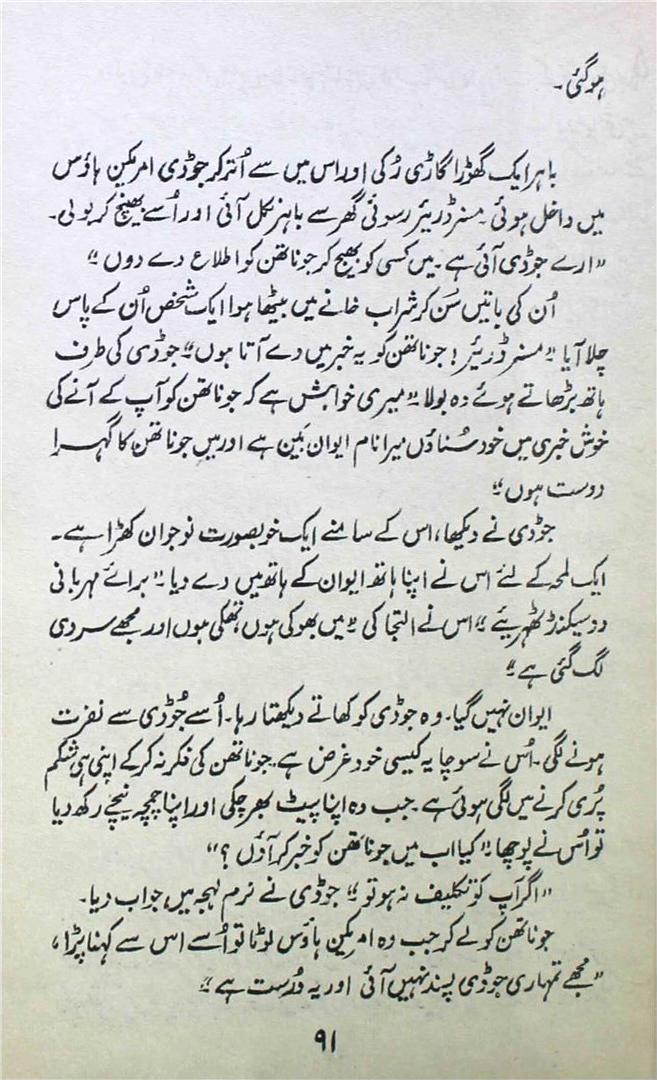 ہوگئی۔
باہر ایک گھوڑا گاڑی رُکی اور اس میں سے اُتر کر جوڈی امریکن ہاؤس
میں داخل ہوئی۔ مسز ڈریئر رسوئی گھر سے باہر نکل آئی اور اُسے بھینچ کر بولی۔
"ارے جوڈی آئی ہے۔ میں کسی کو بھیج کر جوناتھن کو اطلاع دے دوں؟"
اُن کی باتیں سُن کر شراب خانے میں بیٹھا ہوا ایک شخص اُن کے پاس
چلا آیا "مسز ڈریئر! جوناتھن کو یہ خبر میں دے آتا ہوں" جوڈی کی طرف
ہاتھ بڑھاتے ہوئے وہ بولا "میری خواہش ہے کہ جوناتھن کو آپ کے آنے کی
خوش خبری میں خود سُناؤں میرا نام ایوان بَین ہے اور میں جوناتھن کا گہرا
دوست ہوں"
جوڈی نے دیکھا، اس کے سامنے ایک خوبصورت نوجوان کھڑا ہے۔
ایک لمحہ کے لئے اس نے اپنا ہاتھ ایوان کے ہاتھ میں دے دیا "برائے مہربانی
دو سیکنڈ ٹھہریئے" اس نے التجا کی "میں بھوکی ہوں، تھکی ہوں اور مجھے سردی
لگ گئی ہے"
ایوان نہیں گیا۔ وہ جوڈی کو کھاتے دیکھتا رہا۔ اُسے جُوڈی سے نفرت
ہونے لگی۔ اُس نے سوچا یہ کیسی خود غرض ہے۔ جوناتھن کی فکر نہ کر کے اپنی ہی شکم
پُری کرنے میں لگی ہوئی ہے۔ جب وہ اپنا پیٹ بھر چکی اور اپنا چمچہ نیچے رکھ دیا
تو اُس نے پوچھا "کیا اب میں جوناتھن کو خبر کر آؤں؟"
"اگر آپ کو تکلیف نہ ہو تو" جوڈی نے نرم لہجہ میں جواب دیا۔
جوناتھن کو لے کر جب وہ امریکن ہاؤس لوٹا تو اُسے اس سے کہنا پڑا،
"مجھے تمہاری جوڈی پسند نہیں آئی اور یہ درست ہے"
۹۱